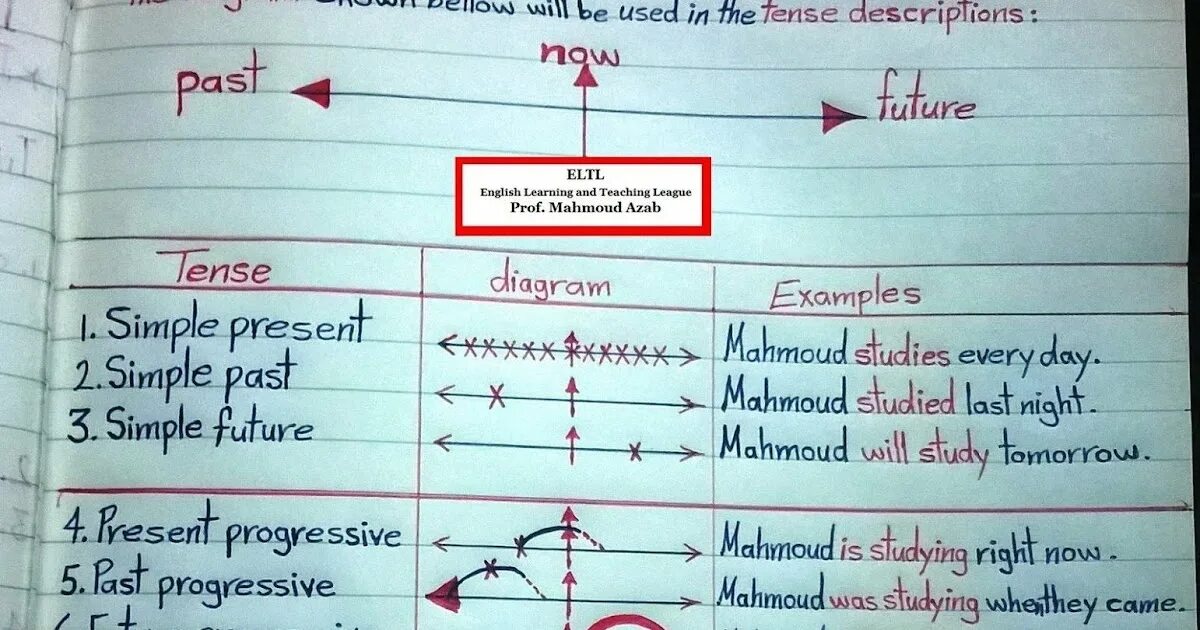 shown bellow will be used in the tense descriptions:
now
past
future
ELTL
English Learning and Teaching League
Prof. Mahmoud Azab
Tense diagram Examples
1. Simple present Mahmoud studies every day.
2. Simple past Mahmoud studied last night.
3. Simple future Mahmoud will study tomorrow.
4. Present progressive Mahmoud is studying right now.
5. Past progressive Mahmoud was studying when they came.